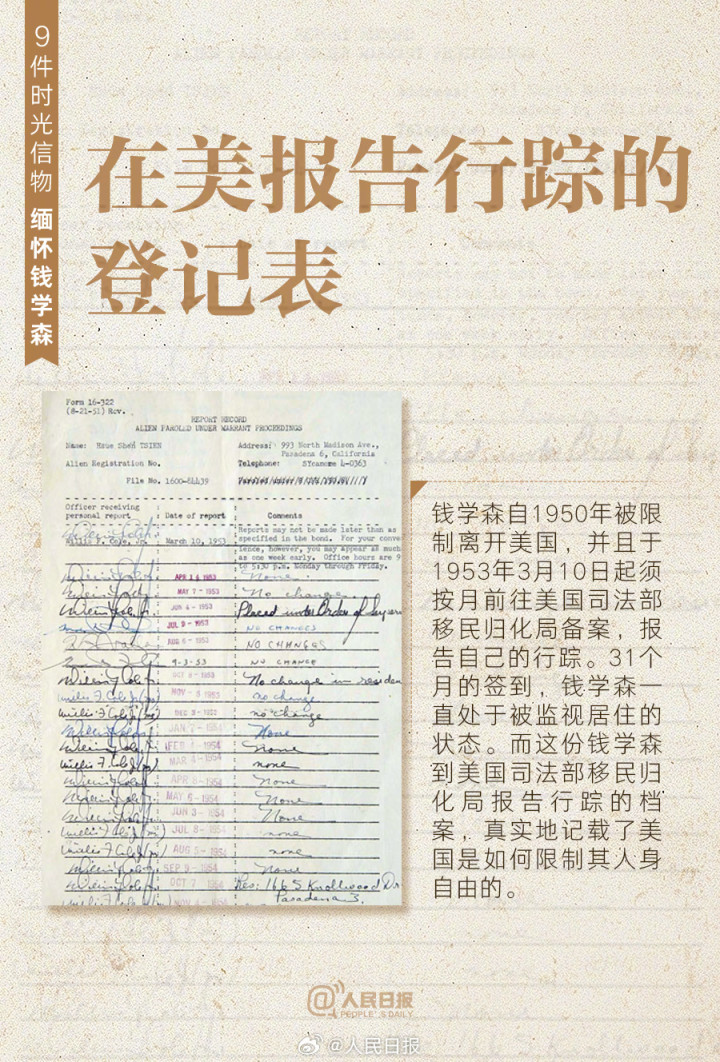 9件时光信物 缅怀钱学森
在美报告行踪的
登记表
Form 16-322
(8-21-51) Rev.
REPORT RECORD
ALIEN PAROLED UNDER WARRANT PROCEEDINGS
Name: Hsue Shen TSIEN
Address: 993 North Madison Ave.,
Pasadena 6, California
Alien Registration No.
Telephone: SYcamore 4-0363
File No. 1600-84439
Officer receiving
personal report
Date of report
Comments
Reports may not be made later than as
specified in the bond. For your conve-
ience, however, you may appear as much
as one week early. Office hours are 9
to 5:30 p.m. Monday through Friday.
March 10, 1953
APR 14 1953 None
MAY 7 - 1953 No change
JUN 4 - 1953 Placed under Order of Supervi
JUL 9 - 1953 NO CHANGES
AUG 6 - 1953 NO CHANGES
9-3-53 NO CHANGE
No change in residen
NOV - 1953 no change
no change
JAN 7 - 1954 None
FEB - 1954 None
MAR 4 - 1954 none
APR 8 - 1954 None
MAY 6 - 1954 None
JUN 3 - 1954 None
JUL 8 - 1954 none
AUG 5 - 1954 none
SEP 9 - 1954 None
OCT 7 1954 Res: 166 S. Knollwood Dr
Pasadena
NOV 4 - 1954
钱学森自1950年被限
制离开美国，并且于
1953年3月10日起须
按月前往美国司法部
移民归化局备案，报
告自己的行踪。31个
月的签到，钱学森一
直处于被监视居住的
状态。而这份钱学森
到美国司法部移民归
化局报告行踪的档
案，真实地记载了美
国是如何限制其人身
自由的。
@人民日报
PEOPLE'S DAILY
@人民日报